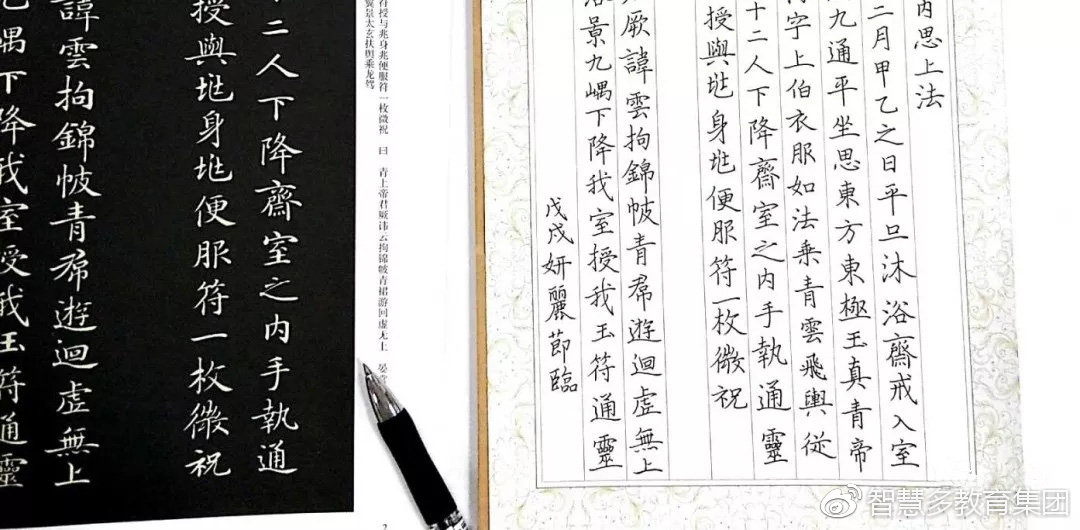 內思上法
二月甲乙之日平旦沐浴齋戒入室
九通平坐思東方東極玉真青帝
字上伯衣服如法乘青雲飛輿從
十二人下降齋室之內手執通靈
授與兆身兆便服符一枚微祝
厥諱雲拘錦帔青帬遊迴虛無上
景九嵎下降我室授我玉符通靈
戊戌妍麗節臨
符授与兆身兆便服符一枚微祝 曰 青上帝君厥讳云拘锦帔青裙游回虚无上 晏
翼景太玄扶舆乘龙驾
十二人下降齋室之內手執通
授與兆身兆便服符一枚微祝
諱雲拘錦帔青帬遊迴虛無上
九嵎下降我室受我玉符通靈
2
智慧多教育集团